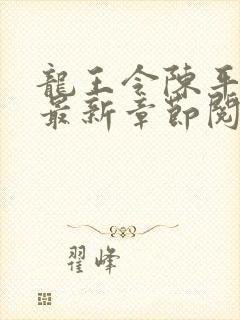 龍王令陳平
最新章節閱
翟峰